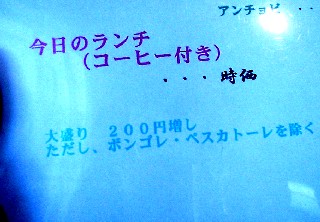 アンチョビ・・
今日のランチ
(コーヒー付き)
・・・時価
大盛り 200円増し
ただし、ボンゴレ・ペスカトーレを除く